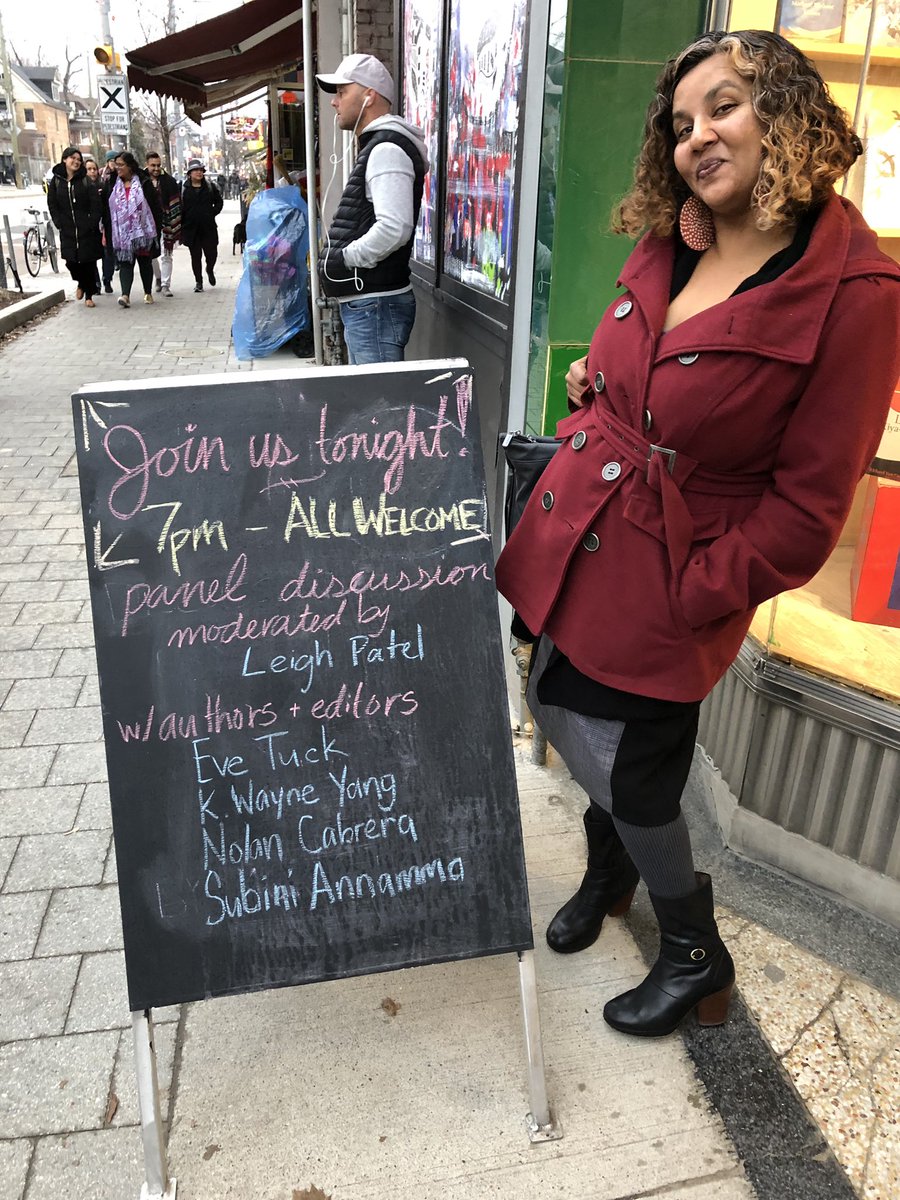 PEDESTRIAN
X
STOP FOR
PEDESTRIANS
Join us tonight!
7pm - ALL WELCOME
panel discussion
moderated by
Leigh Patel
w/authors + editors
Eve Tuck
K. Wayne Yang
Nolan Cabrera
Subini Annamma